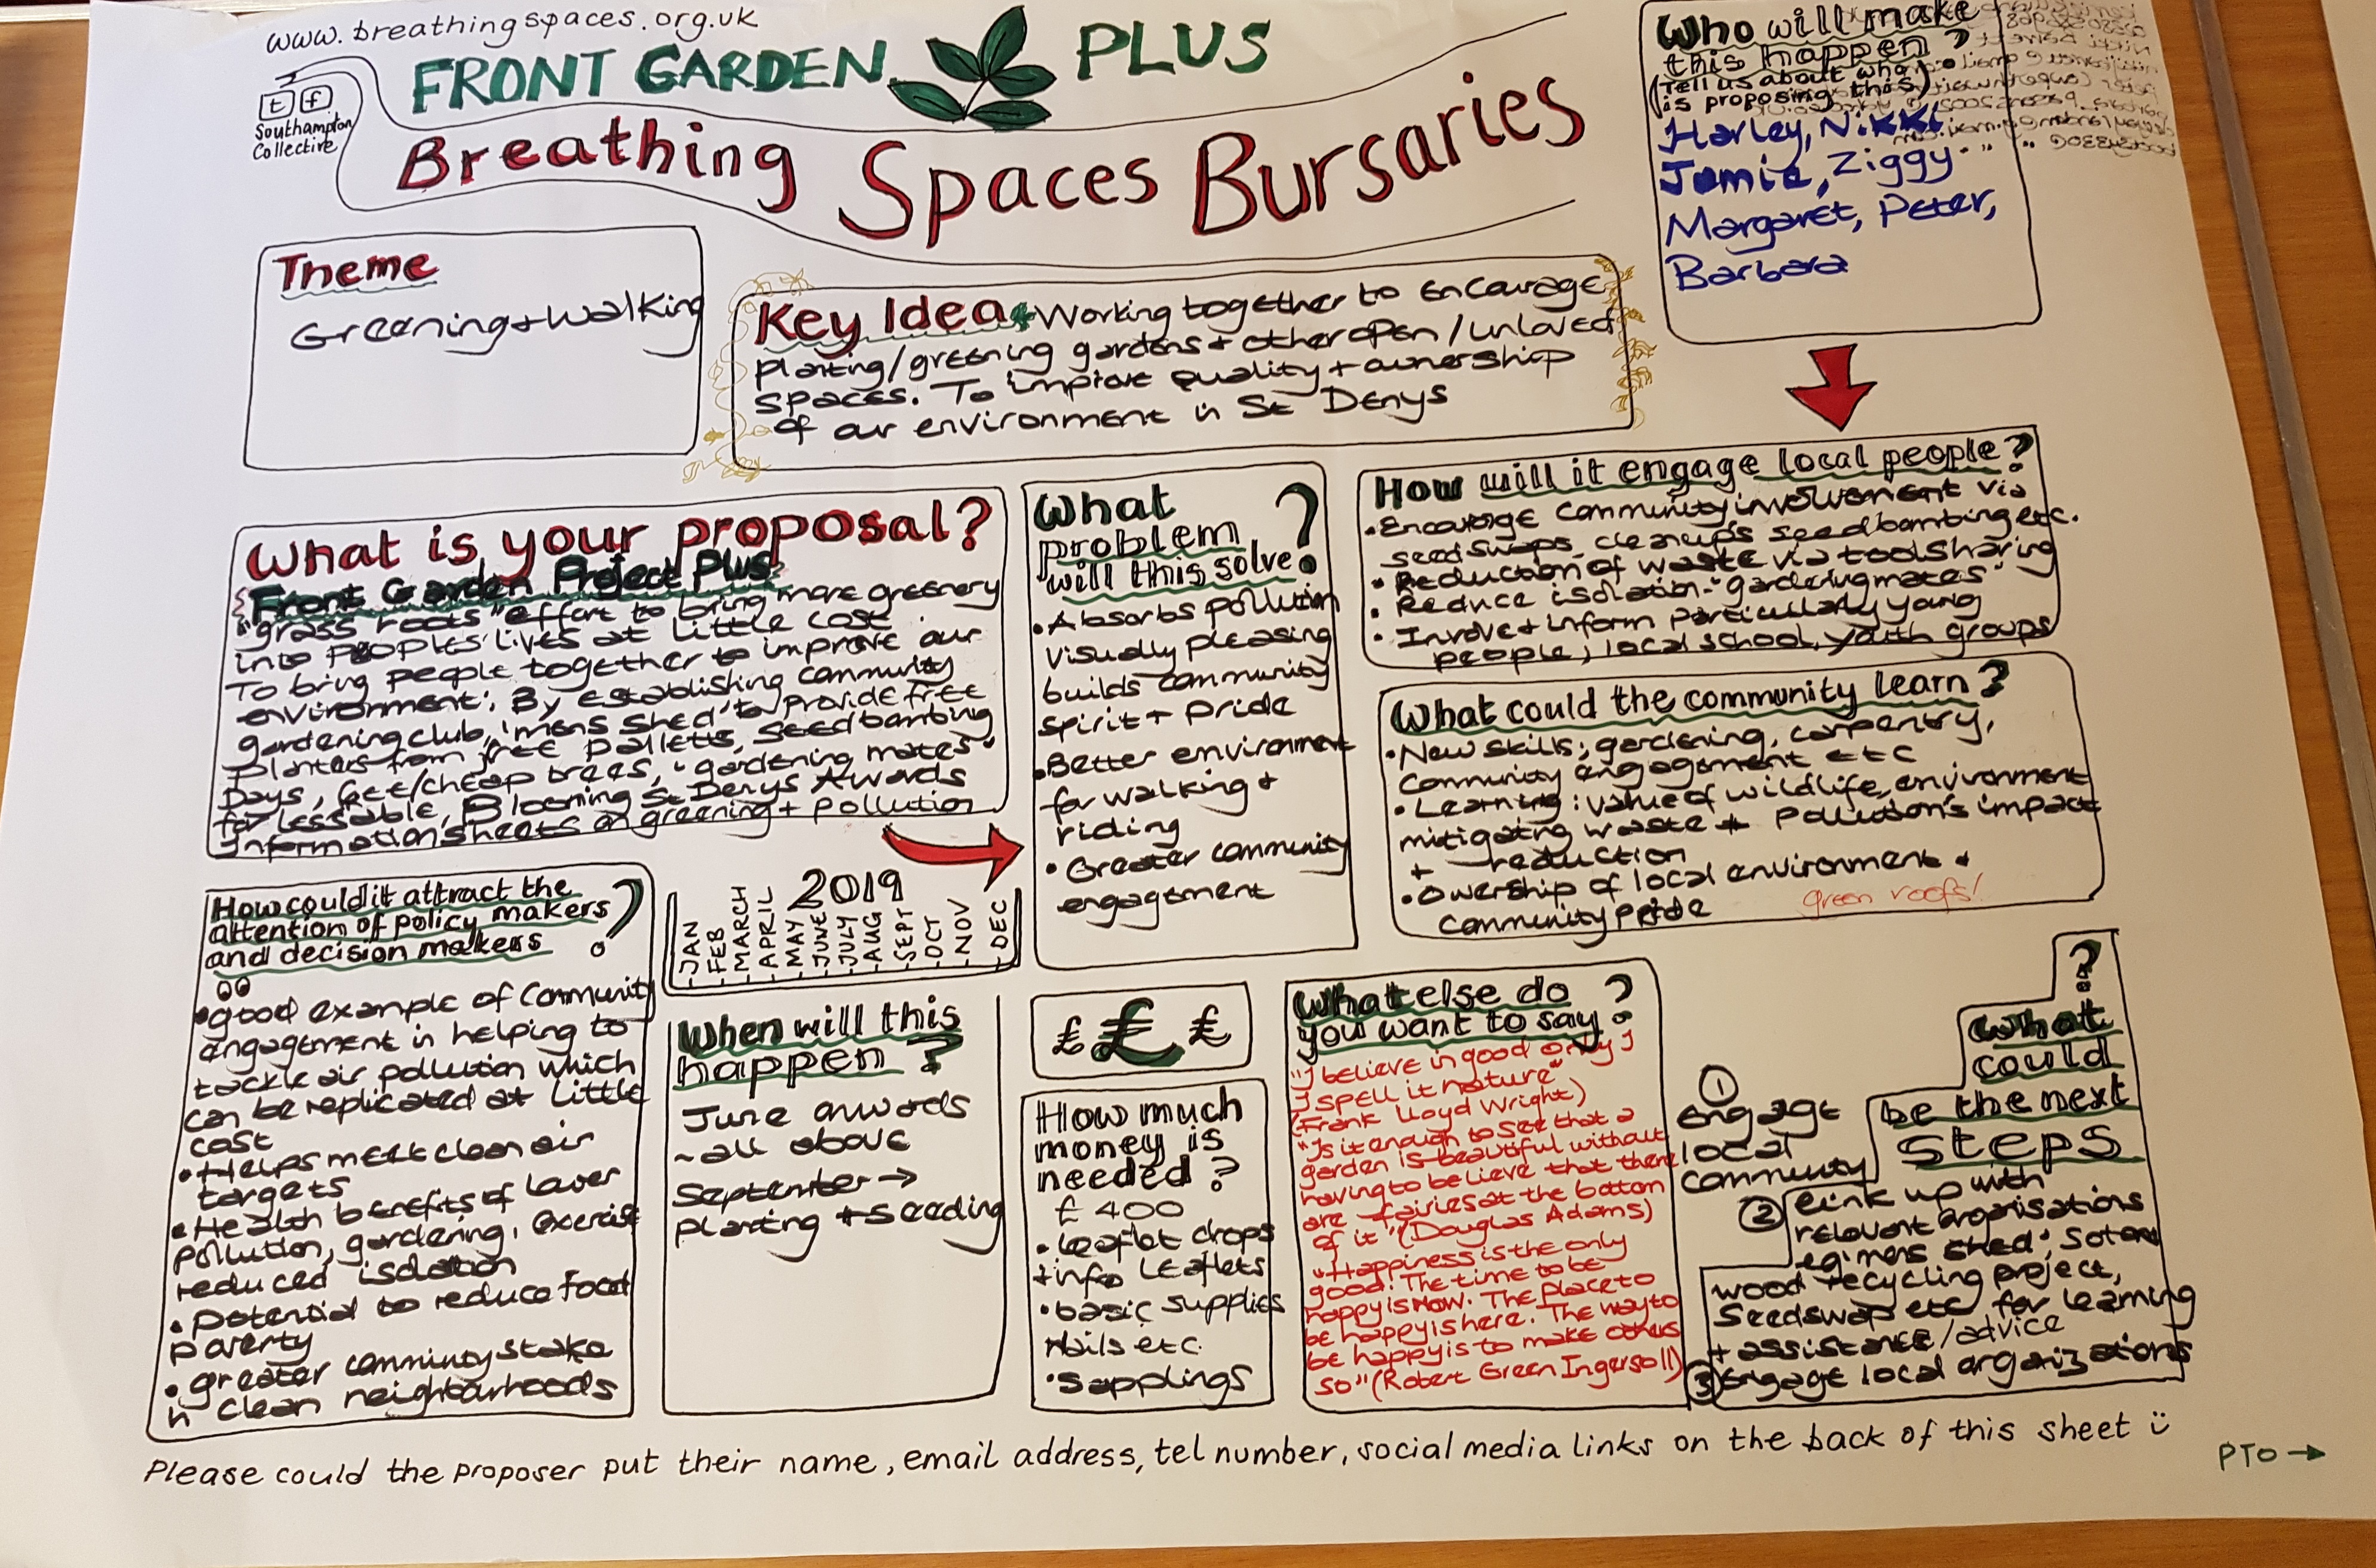 www.breathingspaces.org.uk
FRONT GARDEN PLUS
t f
Southampton
Collective
Breathing Spaces Bursaries
Who will make
this happen?
(Tell us about who
is proposing this)
Harley, Nikki
Jamie, Ziggy
Margaret, Peter,
Barbara
Theme
Greening + Walking
Key Idea Working together to encourage
planting/greening gardens + other open/unloved
spaces. To improve quality + ownership
of our environment in St Denys
What is your proposal?
Front Garden Project Plus
"grass roots" effort to bring more greenery
into peoples' lives at little cost
To bring people together to improve our
environment; By establishing community
gardening club, 'mens shed' to provide free
planters from free palletts, seedbombing
Days, free/cheap trees, "gardening mates"
for less able, Blooming St Denys Awards
Information sheets on greening + pollution
What
problem
will this solve?
• Absorbs pollution
visually pleasing
builds community
spirit + pride
• Better environment
for walking +
riding
• Greater community
engagement
How will it engage local people?
• Encourage community involvement via
seedswaps, cleanups seedbombing etc.
• Reduction of waste via toolsharing
• Reduce isolation - "gardening mates"
• Involve + inform particularly young
people, local school, youth groups
What could the community learn?
• New skills; gardening, carpentry,
community engagement etc
• Learning: value of wildlife, environment
mitigating waste + pollution's impact
+ reduction
• Owership of local environment +
community pride
green roofs!
How could it attract the
attention of policy makers
and decision makers?
• good example of community
engagement in helping to
tackle air pollution which
can be replicated at little
cost
• Helps meet clean air
targets
• Health benefits of lower
pollution, gardening, exercise
reduced isolation
• Potential to reduce food
poverty
• greater community stake
in clean neighbourhoods
2019
JAN
FEB
MARCH
APRIL
MAY
JUNE
JULY
AUG
SEPT
OCT
NOV
DEC
When will this
happen?
June awards
~ all above
September →
planting + seeding
£ £ £
How much
money is
needed?
£400
• leaflet drops
+ info leaflets
• basic supplies
nails etc.
• sapplings
What else do
you want to say?
"I believe in good only I
spell it nature"
(Frank Lloyd Wright)
"Is it enough to see that a
garden is beautiful without
having to believe that there
are fairies at the bottom
of it" (Douglas Adams)
"Happiness is the only
good. The time to be
happy is now. The place to
be happy is here. The way to
be happy is to make others
so" (Robert Green Ingersoll)
?
What
could
be the next
steps
① engage
local
community
② link up with
relevant organisations
eg. 'mens shed', Soton
wood recycling project,
Seedswap etc for learning
+ assistance/advice
③ Engage local organizations
Please could the proposer put their name, email address, tel number, social media links on the back of this sheet
PTO →